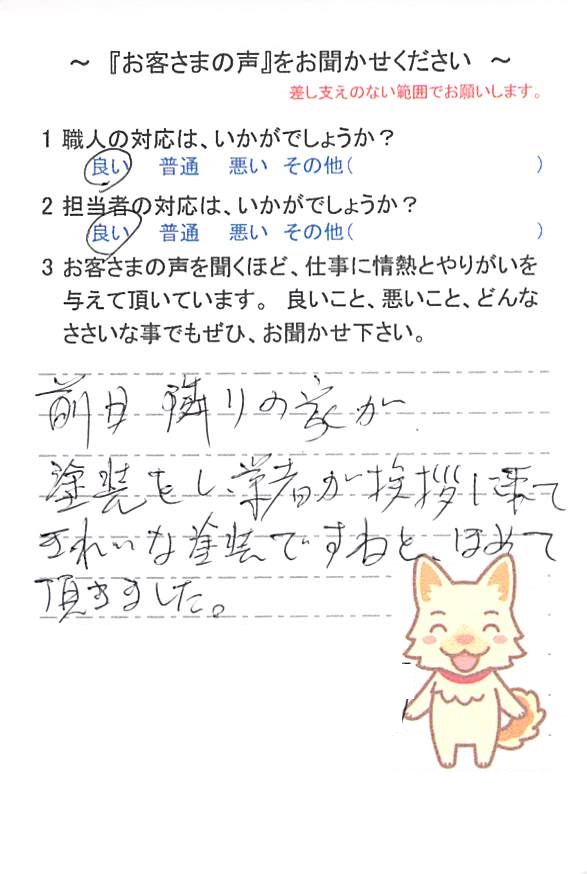 ～ 『お客さまの声』をお聞かせください ～
差し支えのない範囲でお願いします。
1 職人の対応は、いかがでしょうか？
良い 普通 悪い その他( )
2 担当者の対応は、いかがでしょうか？
良い 普通 悪い その他( )
3 お客さまの声を聞くほど、仕事に情熱とやりがいを
与えて頂いています。 良いこと、悪いこと、どんな
ささいな事でもぜひ、お聞かせ下さい。
前日 隣りの家が
塗装をし、業者が挨拶に来て
きれいな塗装ですねと、ほめて
頂きました。